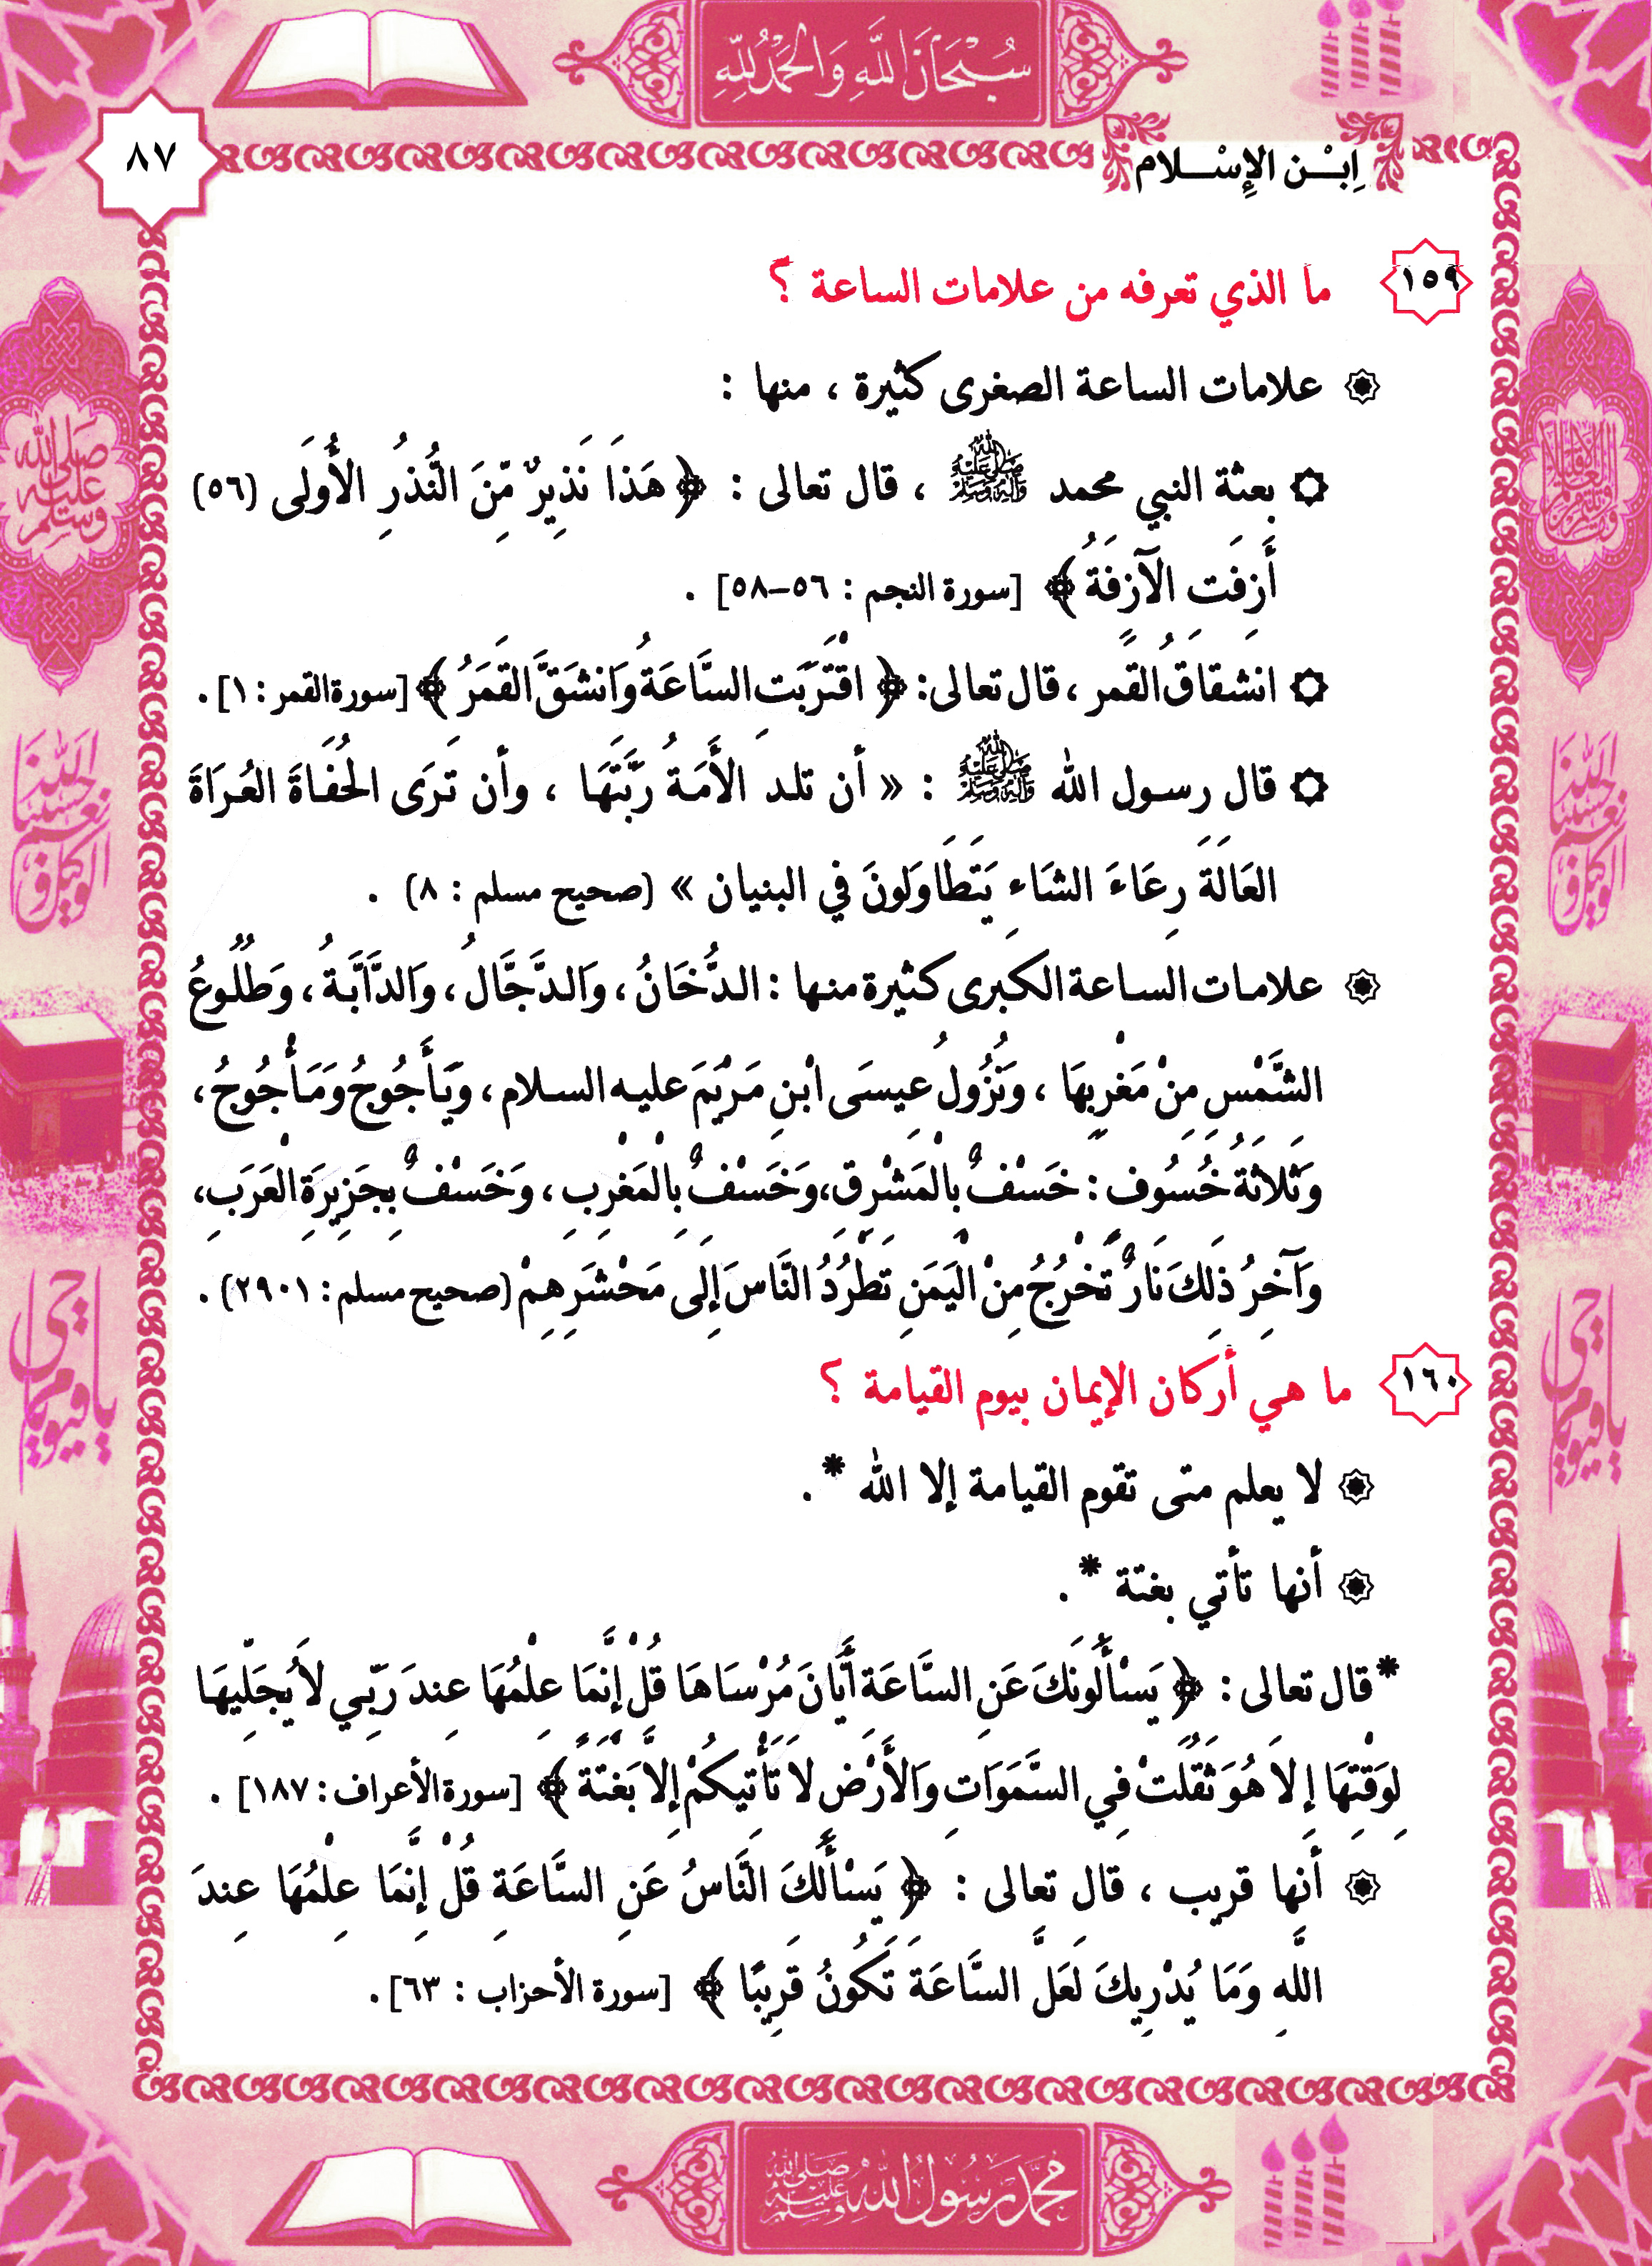 سُبْحَانَ اللَّهِ وَالْحَمْدُ لِلَّهِ
٨٧
اِبْـن الإِسْـلام
١٥٩ ما الذي تعرفه من علامات الساعة ؟
علامات الساعة الصغرى كثيرة ، منها :
بعثة النبي محمد ﷺ ، قال تعالى : ﴿ هَذَا نَذِيرٌ مِّنَ النُّذُرِ الأُولَى (٥٦)
أَزِفَتِ الآزِفَةُ ﴾ [سورة النجم : ٥٦-٥٨] .
انشقاقُ القمر ، قال تعالى: ﴿ اقْتَرَبَتِ السَّاعَةُ وَانشَقَّ القَمَرُ ﴾ [سورة القمر : ١] .
قال رسول الله ﷺ : « أن تلد الأَمَةُ رَبَّتَهَا ، وأن تَرَى الحُفَاةَ العُرَاةَ
العَالَةَ رِعَاءَ الشَاءِ يَتَطَاوَلونَ في البنيان » (صحيح مسلم : ٨) .
علامات الساعة الكبرى كثيرة منها : الدُّخَانُ ، وَالدَّجَّالُ ، وَالدَّابَّةُ ، وَطُلُوعُ
الشَّمْسِ مِنْ مَغْرِبِهَا ، وَنُزُولُ عِيسَى ابْنِ مَرْيَمَ عليه السلام ، وَيَأَجُوجُ وَمَأْجُوجُ ،
وَثَلاثَةُ خُسُوف : خَسْفٌ بِالْمَشْرِقِ ، وَخَسْفٌ بِالْمَغْرِبِ ، وَخَسْفٌ بِجَزِيرَةِ الْعَرَبِ ،
وَآخِرُ ذَلِكَ نَارٌ تَخْرُجُ مِنْ الْيَمَنِ تَطْرُدُ النَّاسَ إِلَى مَحْشَرِهِمْ (صحيح مسلم : ٢٩٠١) .
١٦٠ ما هي أركان الإيمان بيوم القيامة ؟
لا يعلم متى تقوم القيامة إلا الله * .
أنها تأتي بغتة * .
* قال تعالى : ﴿ يَسْأَلُونَكَ عَنِ السَّاعَةِ أَيَّانَ مُرْسَاهَا قُلْ إِنَّمَا عِلْمُهَا عِندَ رَبِّي لاَ يُجَلِّيهَا
لِوَقْتِهَا إِلاَ هُوَ ثَقُلَتْ فِي السَّمَوَاتِ وَالأَرْضِ لاَ تَأْتِيكُمْ إِلاَّ بَغْتَةً ﴾ [سورة الأعراف : ١٨٧] .
أنها قريب ، قال تعالى : ﴿ يَسْأَلُكَ النَّاسُ عَنِ السَّاعَةِ قُلْ إِنَّمَا عِلْمُهَا عِندَ
اللَّهِ وَمَا يُدْرِيكَ لَعَلَّ السَّاعَةَ تَكُونُ قَرِيبًا ﴾ [سورة الأحزاب : ٦٣] .
صلى الله عليه وسلم
حسبنا الله نعم الوكيل
يا حي يا قيوم
محمد رسول الله صلى الله عليه وسلم